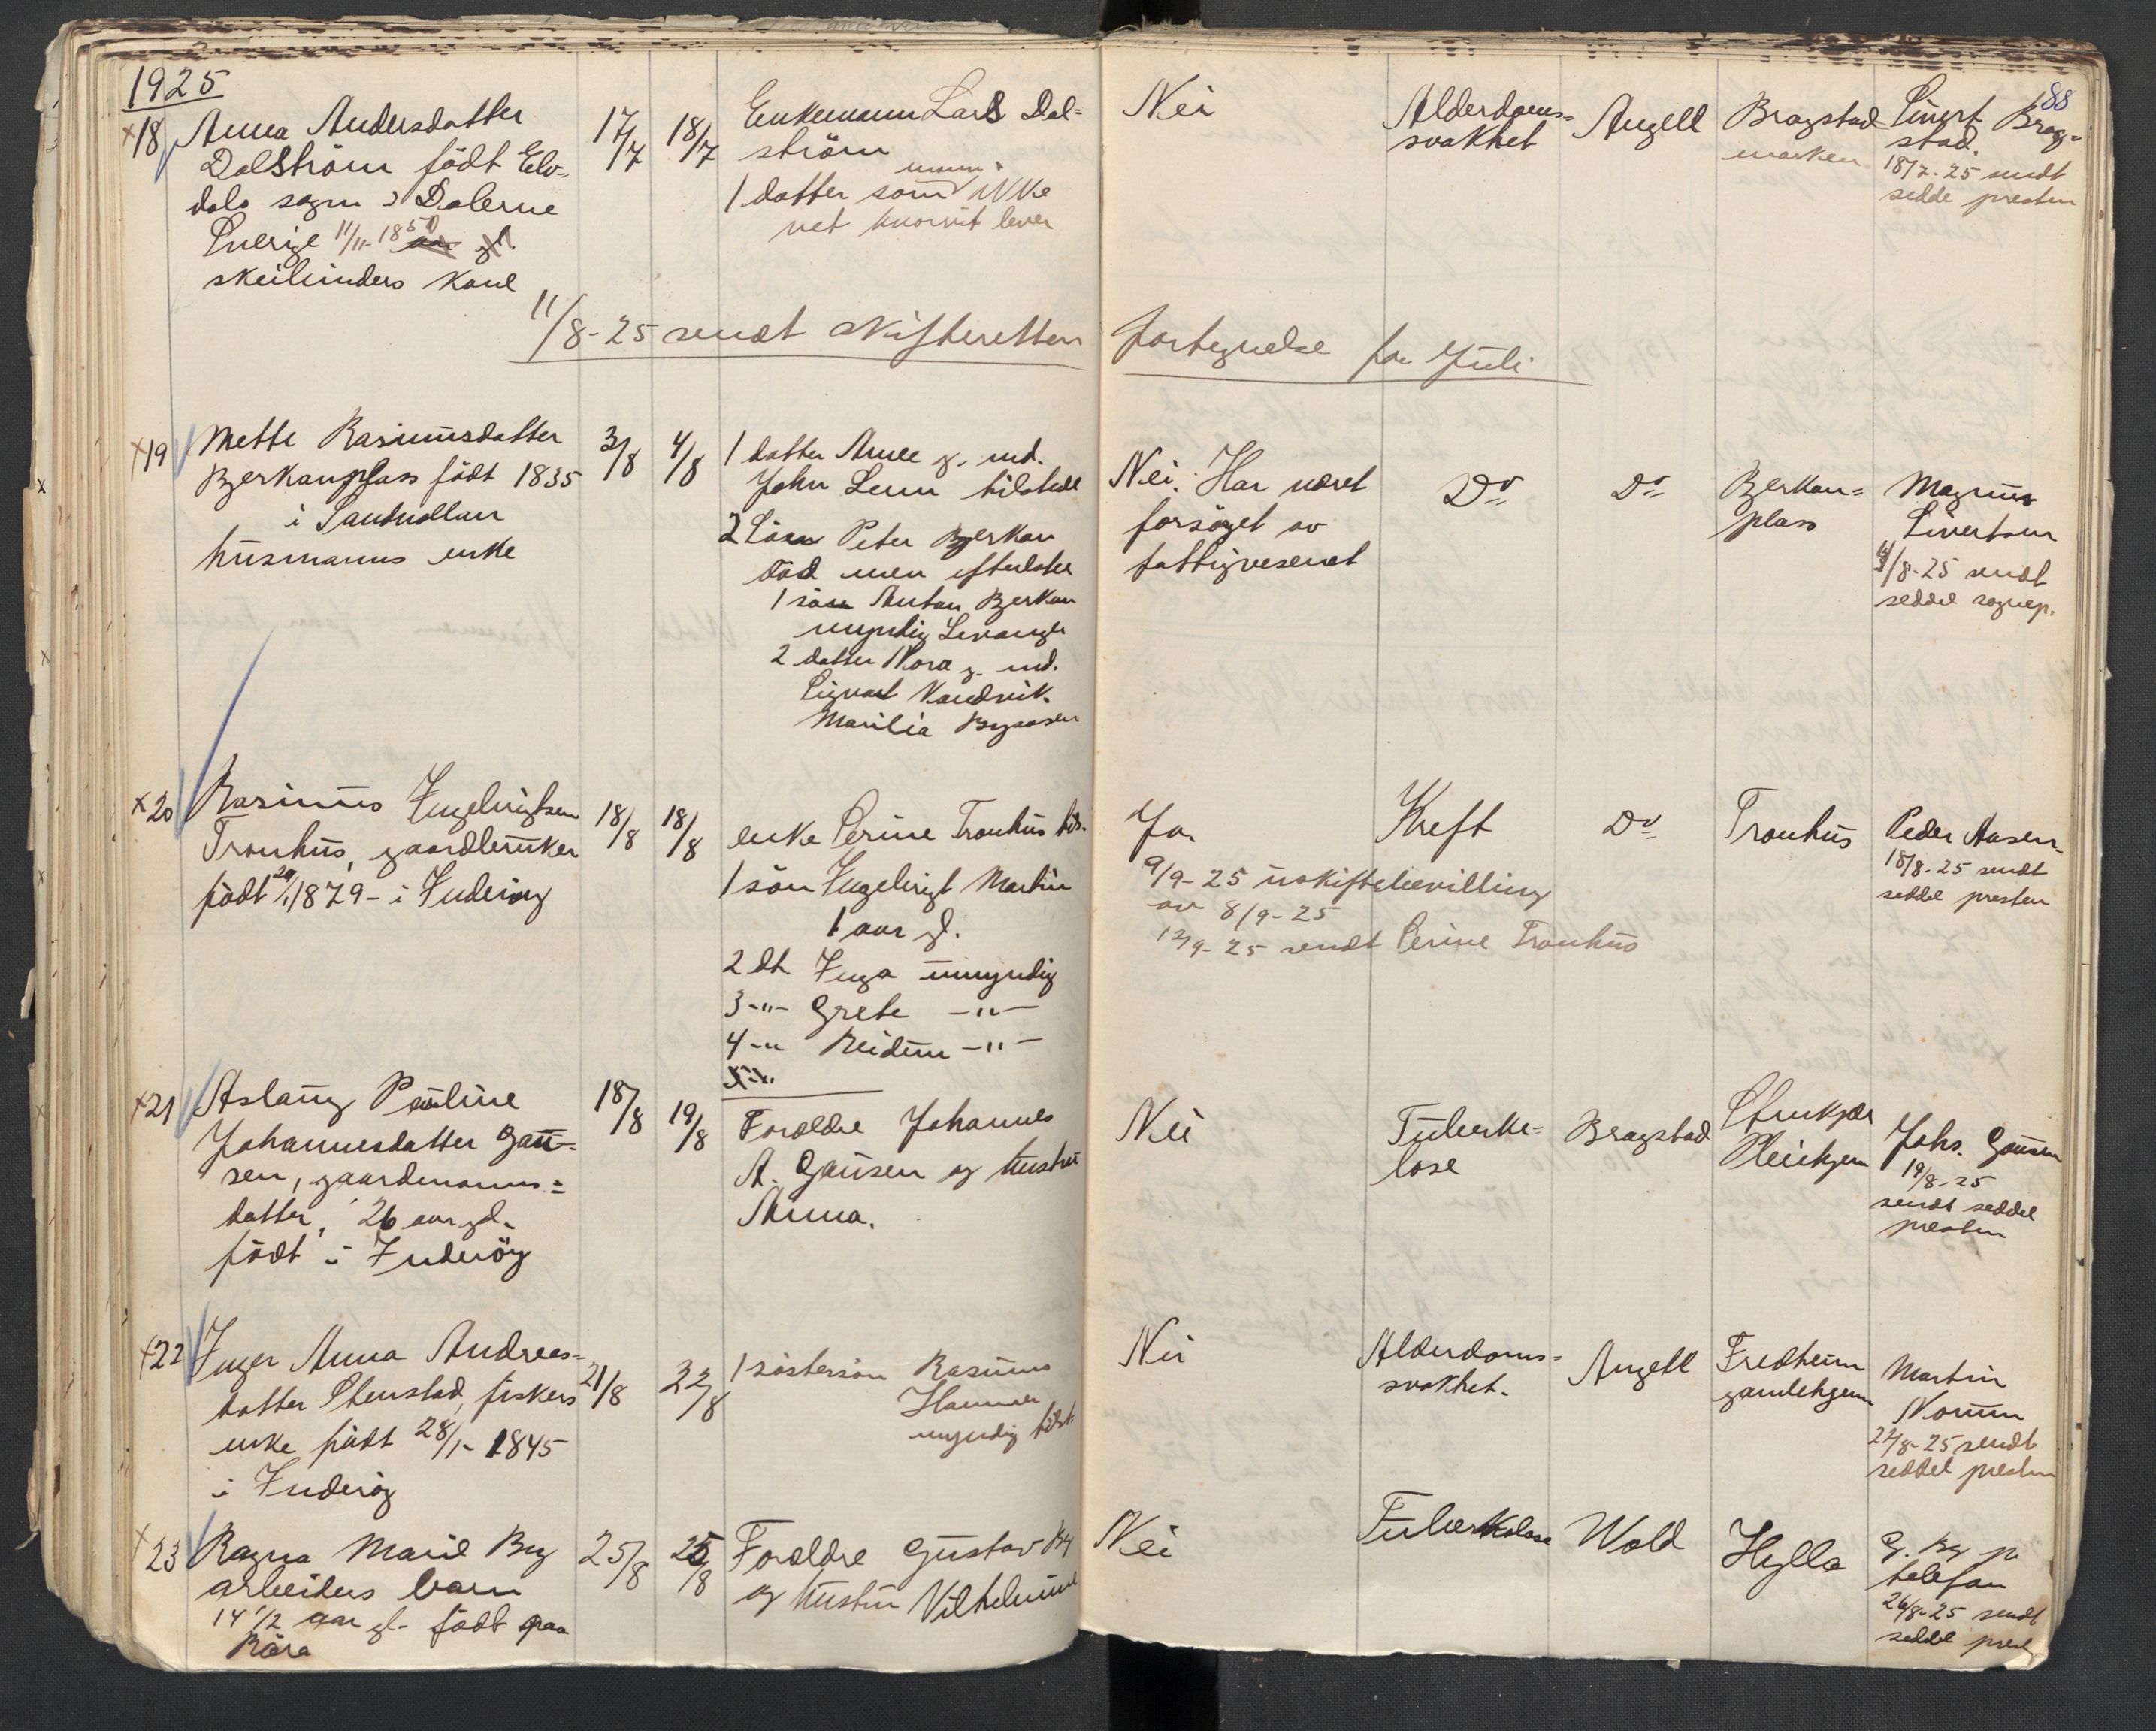 1925
88
18 Anna Andersdatter
Dalström født Elv-
dals sogn i Dalerne
Sverige 11/11-1850
kone
17/7
18/7
Enkemann Lars Dal-
ström
1 datter som man ikke
vet hvorvit lever
Nei
Alderdoms-
svakhet
Angell
Bragstad
marken
Sivert Brag-
stad.
18/7-25 sendt
sedde presten
11/8-25 sendt skifteretten fortegnelse for Juli
19 Mette Rasmusdatter
Bjerkanplass født 1835
i Sandvollan
husmanns enke
3/8
4/8
1 datter g. m.d.
John tilstede
2 Sön Peter Bjerkan
död men efterlater
1 sön Anton Bjerkan
myndig Levanger
2 datter Nora g. m.d.
Sigvart Vandvik.
Marilia
Nei. Har været
forsörget av
fattigvesenet
Do
Do
Bjerkan=
plass
Magnus
Sivertsen
4/8-25 sendt
seddel sognep.
20 Rasmus Ingebrigtsen
Tronhus, gaardbruker
født 1879- i Inderöy
18/8
18/8
enke Perine Tronhus tils.
1 sön Ingebrigt Martin
1 aar gl.
2 dt Inga umyndig
3 -"- Grete -"-
4 -"- Reidun -"-
Ja.
9/9-25 uskiftebevilling
av 8/9-25
12/9-25 sendt Perine Tronhus
Kreft
Do
Tronhus
Peder Aasen
18/8-25 sendt
seddel presten
21 Aslaug Pauline
Johannesdatter Gau=
sen, gaardmanns=
datter, 26 aar gl.
født i Inderöy
18/8
19/8
Foreldre Johannes
A. Gausen og hustru
Anna.
Nei
Tuberku=
lose
Bragstad
Stenkjær
Pleiehjem
Johs. Gausen
19/8-25
sendt seddel
presten
22 Inger Anna Andreas-
datter Stenstad, fiskers
enke født 28/1-1845
i Inderöy
21/8
22/8
1 söstersön Rasmus
Hammer
myndig tilst.
Nei
Alderdoms-
svakhet.
Angell
Fredheim
gamlehjem
Martin
Norum
22/8-25 sendt
seddel presten
23 Ragna Marie By
arbeiders barn
14 1/2 aar gl. født paa
Röra
25/8
25/8
Foreldre Gustav By
og hustru Vilhelmine
Nei
Tuberkulose
Wold
Hylla
G. By pr
telefon
26/8-25 sendt
seddel prest